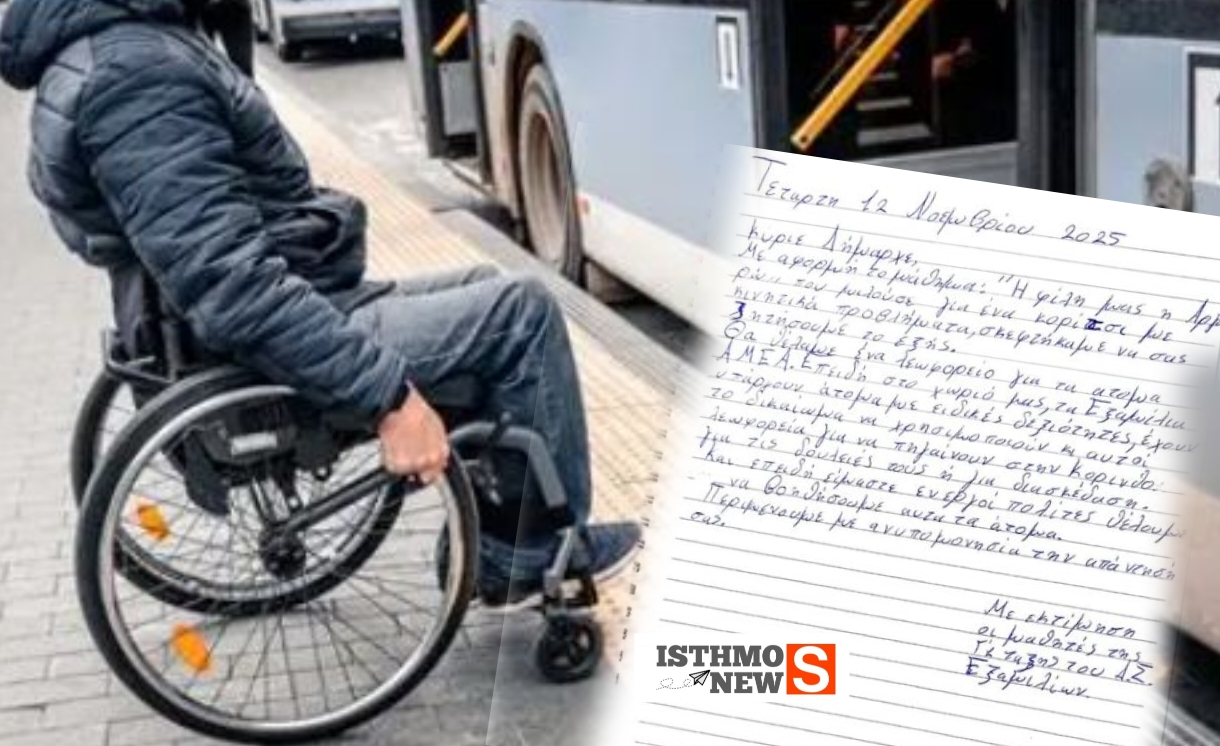 Τετάρτη 12 Νοεμβρίου 2025
Κύριε Δήμαρχε,
Με αφορμή το μάθημα: "Η φίλη μας η Αρμ
που μιλούσε για ένα κορίτσι με
κινητικά προβλήματα, σκεφτήκαμε να σας
ζητήσουμε το εξής.
Θα θέλαμε ένα λεωφορείο για τα άτομα
ΑΜΕΑ. Επειδή στο χωριό μας, τα Εξαμίλια
υπάρχουν άτομα με ειδικές δεξιότητες, έχουν
το δικαίωμα να χρησιμοποιούν κι αυτοί
λεωφορεία για να πηγαίνουν στην Κόρινθο:
για τις δουλειές τους ή για διασκέδαση.
Και επειδή είμαστε ενεργοί πολίτες θέλουμε
να βοηθήσουμε αυτά τα άτομα.
Περιμένουμε με ανυπομονησία την απάντησή
σας.
Με εκτίμηση
οι μαθητές της
Γ' τάξης του ΔΣ.
Εξαμιλίων.
ISTHMO S
NEW